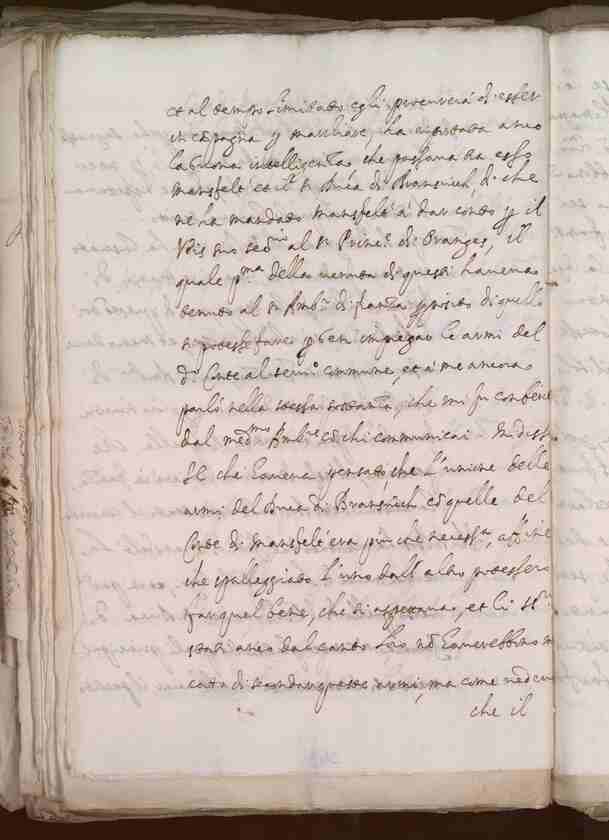 et al tempo limitato egli procurerà di esser
in campagna
la buona intelligenza che passava tra esso
Mansfelt et il Sr Duca di Bransuich, di che
ne ha mandato Mansfelt à dar conto il
suo al Sr Princ. di Oranges, il
quale pma della venuta di questi haveva
tenuto al Sr Ambr di franza proposito di quello
si potesse fare per ben impiegar le armi del
do Conte al servo commune, et à me ancora
parlò nella stessa sostanza, che mi fu conferito
dal medmo Ambre co' chi communicai. Mi disse
SE che haveva pensato, che l'unione delle
armi del Duca di Bransuich cō quelle del
Conte di Mansfelt era più che necessa, affine
che spalleggiato l'uno dall'altro potessero
far quel bene, che si aspettava, et li Sri
stati anco dal canto loro nō haverebbono
di secondar queste armi, ma come
che il